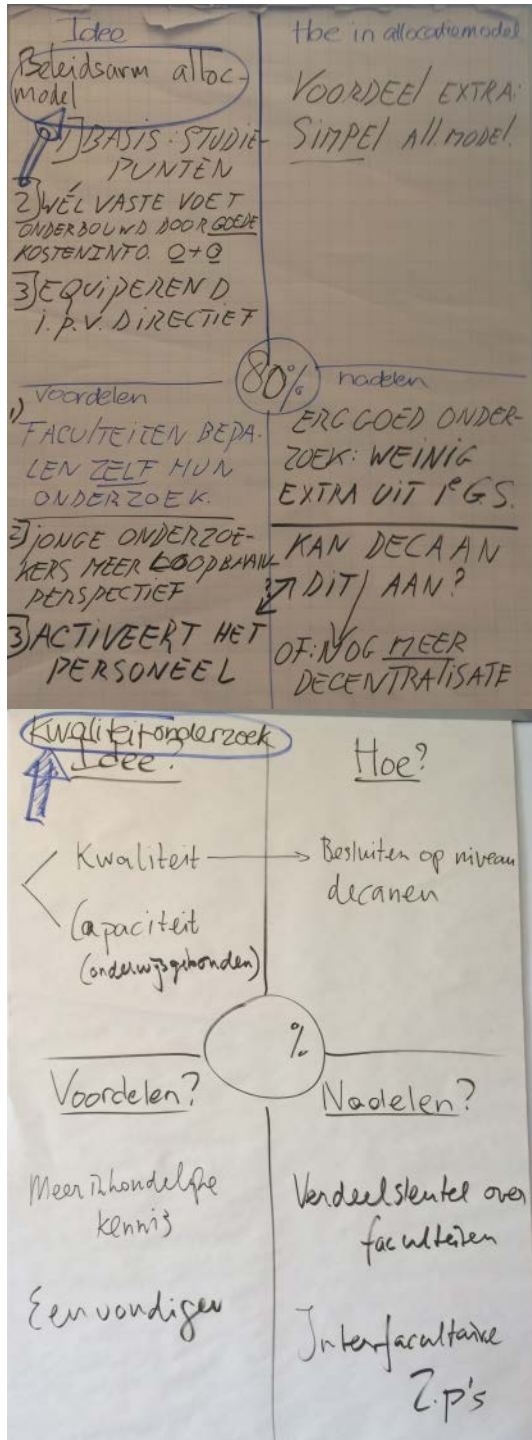 Idee
Beleidsarm alloc-
model
1) BASIS: STUDIE-
PUNTEN
2) WÉL VASTE VOET
ONDERBOUWD DOOR GOEDE
KOSTENINFO. O+O
3) EQUIPEREND
i.p.v. DIRECTIEF
Hoe in allocatiemodel
VOORDEEL EXTRA:
SIMPEL All.MODEL.
80%
voordelen
1)
FACULTEITEN BEPA-
LEN ZELF HUN
ONDERZOEK.
2) JONGE ONDERZOE-
KERS MEER LOOPBAAN-
PERSPECTIEF
3) ACTIVEERT HET
PERSONEEL
nadelen
ERG GOED ONDER-
ZOEK: WEINIG
EXTRA UIT 1e G.S.
KAN DECAAN
DIT AAN?
OF: NOG MEER
DECENTRALISATE
Kwaliteit onderzoek
Idee?
Kwaliteit
Capaciteit
(onderwijsgebonden)
Hoe?
Besluiten op niveau
decanen
%
Voordelen?
Meer inhoudelijke
kennis
Eenvoudiger
Nadelen?
Verdeelsleutel over
faculteiten
Interfacultaire
Z.p's